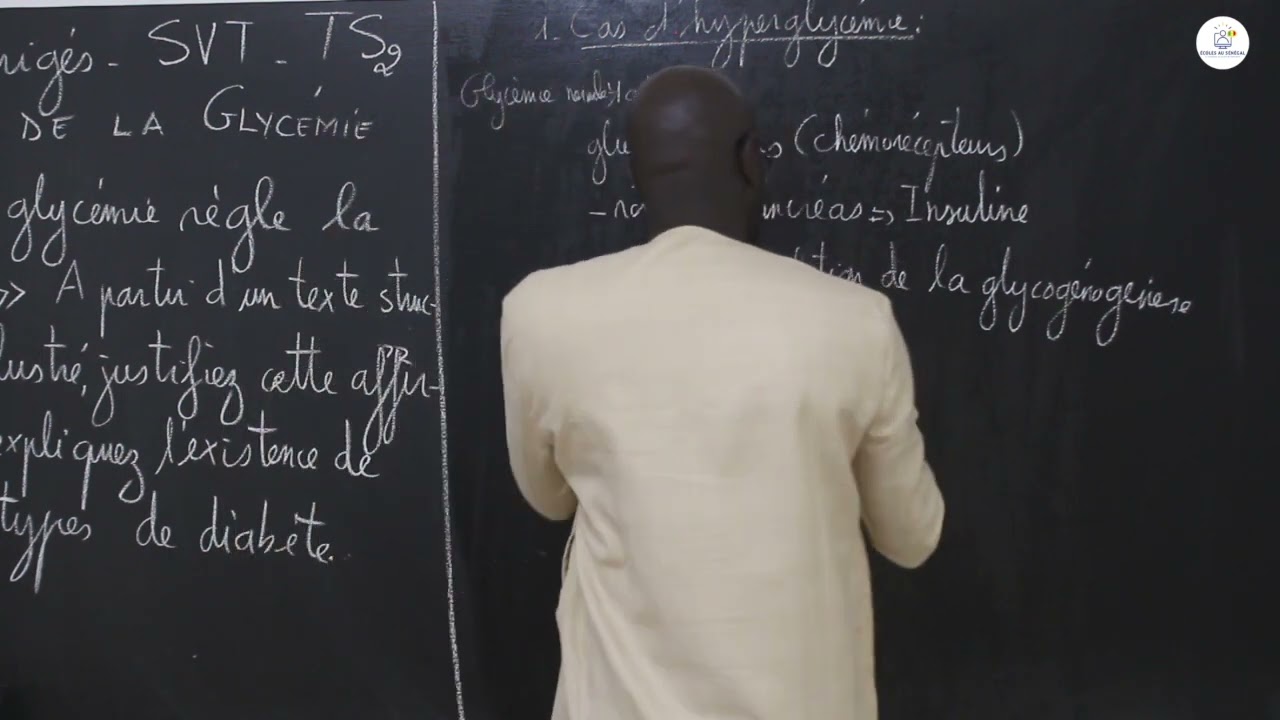 SVT - TS2
DE LA GLYCÉMIE
glycémie règle la
>> A partir d'un texte struc-
justifiez cette affir-
expliquez l'existence de
types de diabète.
1. Cas d'hyperglycémie :
Glycémie
(chémorécepteurs)
Insuline
de la glycogénogénèse
ECOLES AU SENEGAL